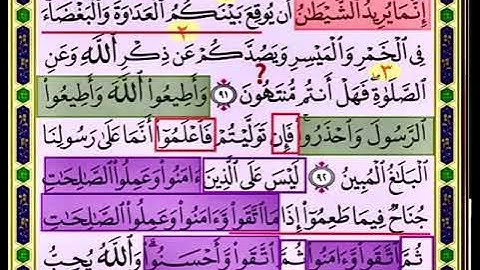 إِنَّمَا يُرِيدُ ٱلشَّيْطَٰنُ أَن يُوقِعَ بَيْنَكُمُ ٱلْعَدَٰوَةَ وَٱلْبَغْضَآءَ
٢
فِى ٱلْخَمْرِ وَٱلْمَيْسِرِ وَيَصُدَّكُمْ عَن ذِكْرِ ٱللَّهِ وَعَنِ
؟ ٣
ٱلصَّلَوٰةِ فَهَلْ أَنتُم مُّنتَهُونَ ٩١ وَأَطِيعُوا۟ ٱللَّهَ وَأَطِيعُوا۟
ٱلرَّسُولَ وَٱحْذَرُوا۟ فَإِن تَوَلَّيْتُمْ فَٱعْلَمُوٓا۟ أَنَّمَا عَلَىٰ رَسُولِنَا
ٱلْبَلَٰغُ ٱلْمُبِينُ ٩٢ لَيْسَ عَلَى ٱلَّذِينَ ءَامَنُوا۟ وَعَمِلُوا۟ ٱلصَّٰلِحَٰتِ
جُنَاحٌ فِيمَا طَعِمُوٓا۟ إِذَا مَا ٱتَّقَوا۟ وَّءَامَنُوا۟ وَعَمِلُوا۟ ٱلصَّٰلِحَٰتِ
ثُمَّ ٱتَّقَوا۟ وَّءَامَنُوا۟ ثُمَّ ٱتَّقَوا۟ وَّأَحْسَنُوا۟ وَٱللَّهُ يُحِبُّ